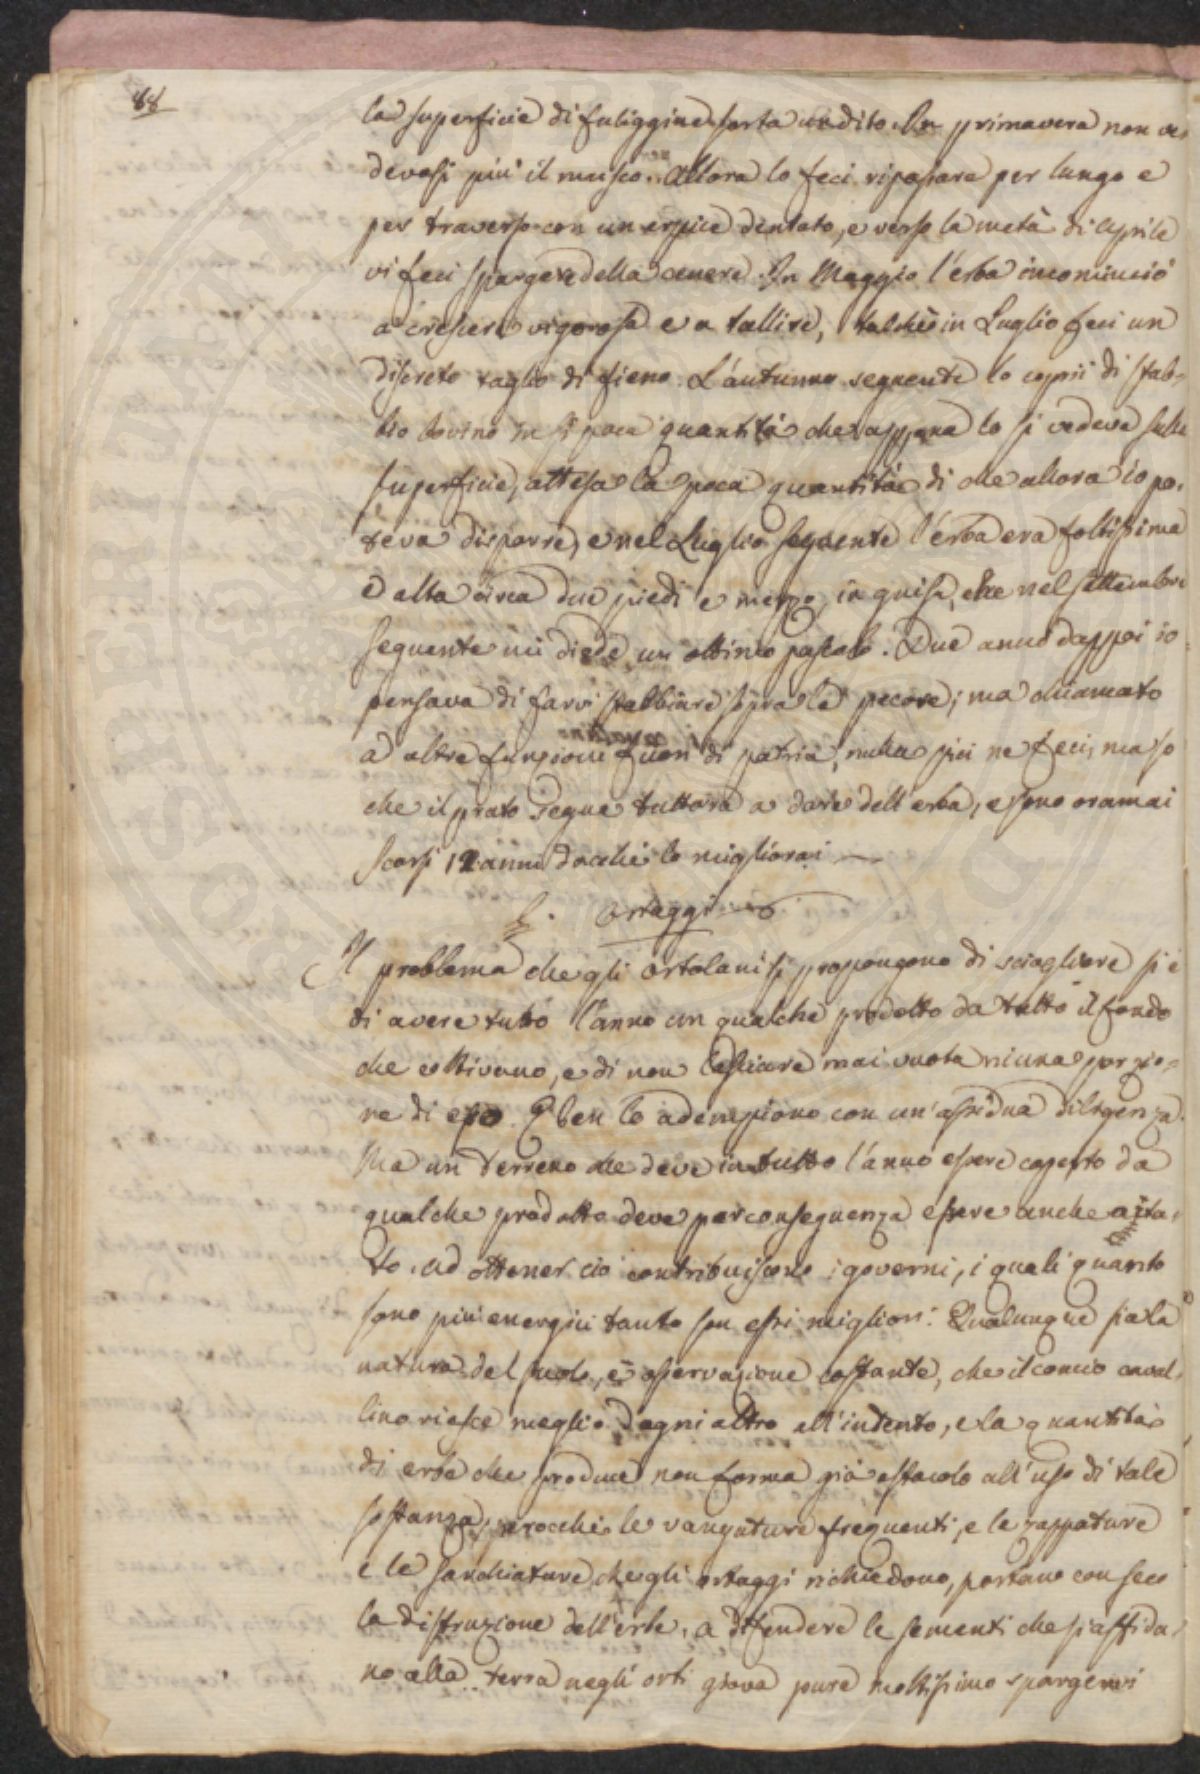 88
la superficie di fuliggine sorta un dito. In primavera non ve-
devasi più il musco. Allora lo feci ripassare per lungo e
per traverso con un erpice dentato, e verso la metà di Aprile
vi feci spargere della cenere. In Maggio l'erba incominciò
a crescere vigorosa e a tallire, talchè in Luglio feci un
discreto taglio di fieno. L'autunno seguente lo coprii di stab-
bio bovino in sì poca quantità che appena lo si vedeva sulla
superficie, attesa la poca quantità di che allora io po-
teva disporre, e nel Luglio seguente l'erba era foltissima
e alta circa due piedi e mezzo, in guisa, che nel settembre
seguente mi diede un ottimo pascolo. Due anni dappoi io
pensava di farvi stabbiare sopra le pecore; ma chiamato
a altre funzioni fuori di patria, nulla più ne feci; ma so
che il prato segue tuttora a dare dell'erba, e sono oramai
scorsi 12 anni dacchè lo migliorai
Ortaggi
Il problema che gli ortolani si propongono di sciogliere si è
di avere tutto l'anno un qualche prodotto da tutto il fondo
che coltivano, e di non lasciare mai vuota niuna porzio-
ne di esso. E ben lo adempiono con un'assidua diligenza.
Ma un terreno che deve in tutto l'anno essere coperto da
qualche prodotto deve per conseguenza essere anche ajta-
to. Ad ottener ciò contribuiscono i governi, i quali quanto
sono più energici tanto son essi migliori. Qualunque sia la
natura del suolo, è osservazione costante, che il concio caval-
lino riesce meglio d'ogni altro all'intento, e la quantità
di erbe che produce non forma già ostacolo all'uso di tale
sostanza, perocchè le vangature frequenti, e le zappature
e le sarchiature che gli ortaggi richiedono, portano con seco
la distruzione dell'erbe. a difendere le sementi che s'affida-
no alla terra negli orti giova pure moltissimo spargervi